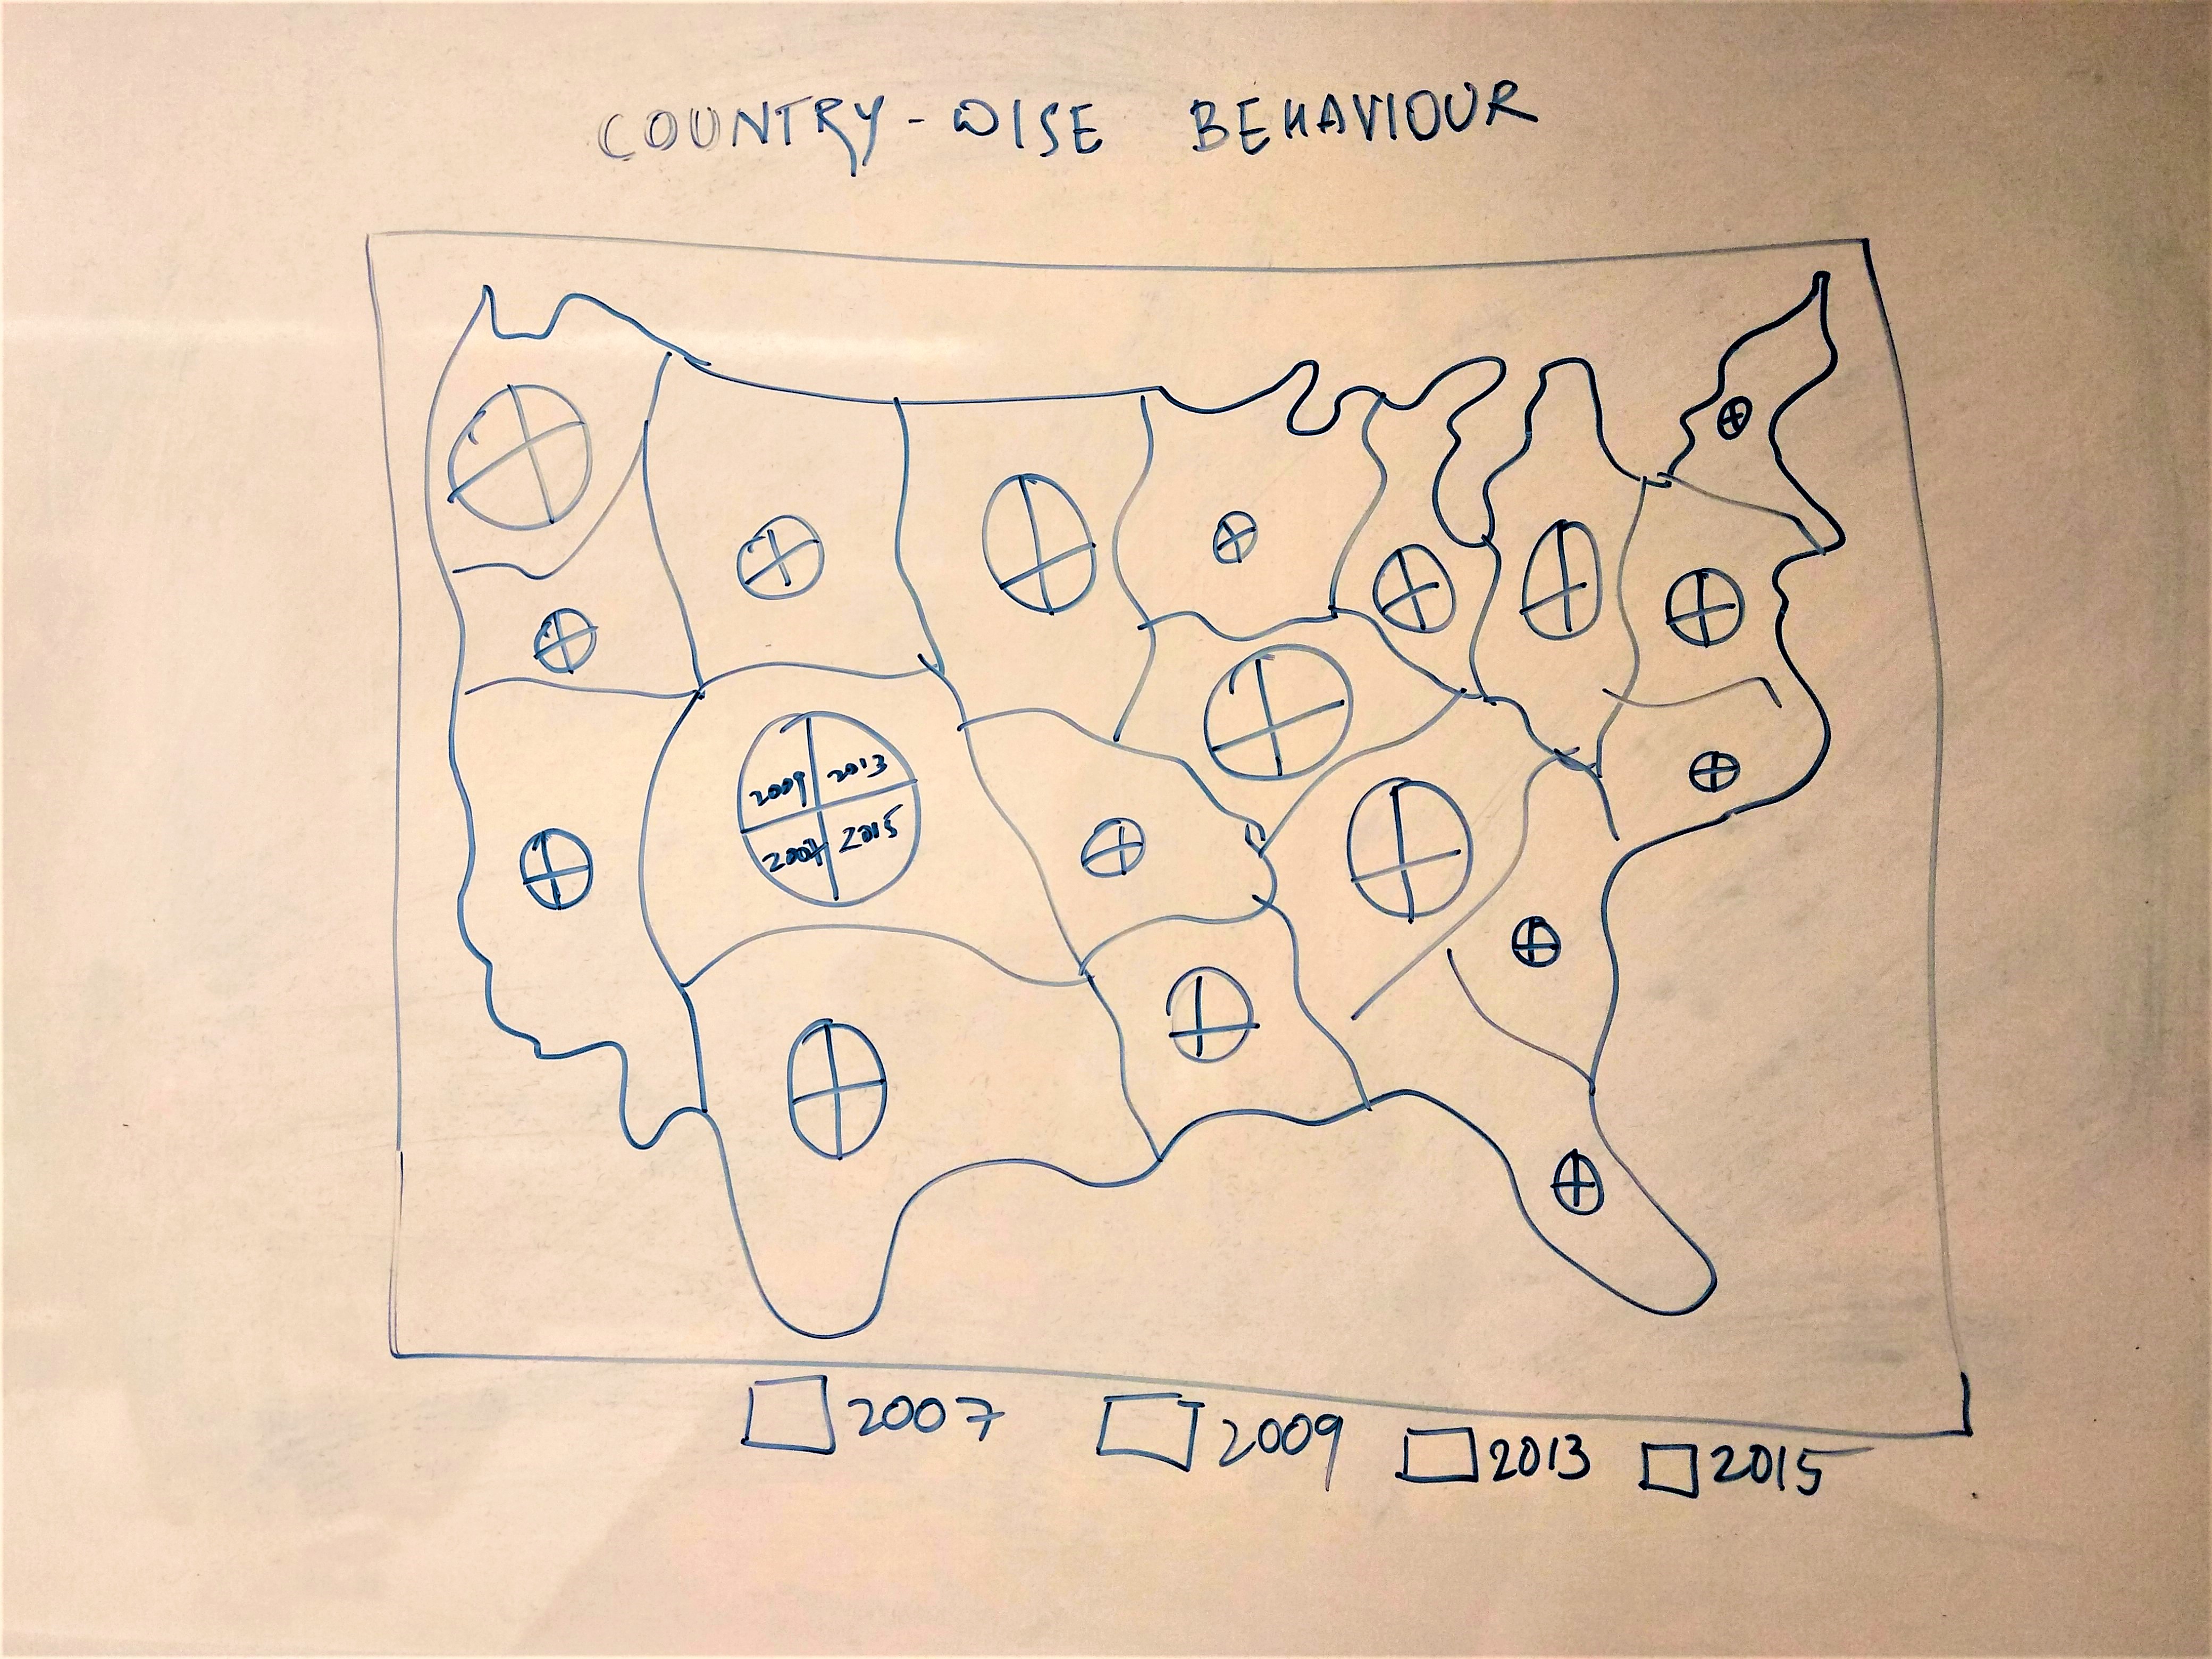 COUNTRY-WISE BEHAVIOUR
2009 2013
2007 2015
2007 2009 2013 2015